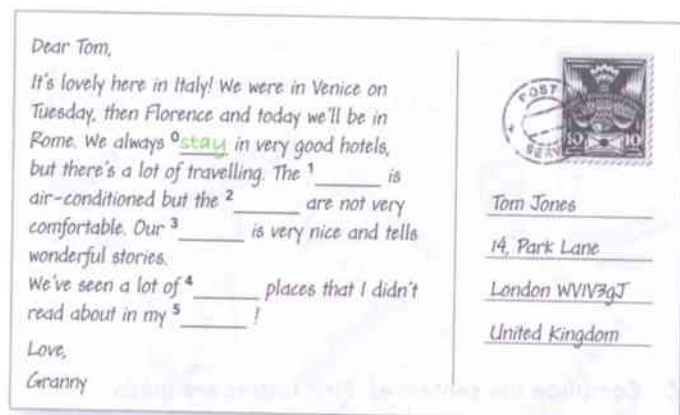 Dear Tom,
It's lovely here in Italy! We were in Venice on
Tuesday, then Florence and today we'll be in
Rome. We always ⁰stay in very good hotels,
but there's a lot of travelling. The ¹_______ is
air-conditioned but the ²_______ are not very
comfortable. Our ³_______ is very nice and tells
wonderful stories.
We've seen a lot of ⁴_______ places that I didn't
read about in my ⁵_______ !
Love,
Granny
POST
10 10
Tom Jones
14, Park Lane
London WV1V3gJ
United Kingdom